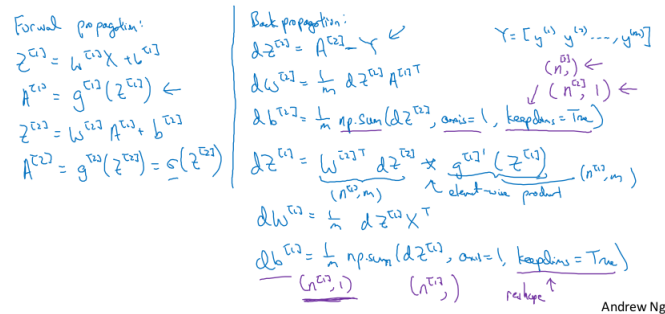 Forward propagation:
z^[1] = w^[1] X + b^[1]
A^[1] = g^[1](z^[1]) ←
z^[2] = w^[2] A^[1] + b^[2]
A^[2] = g^[2](z^[2]) = σ(z^[2])
Back propagation:
dz^[2] = A^[2] - Y ↙
Y = [y^(1) y^(2) ..., y^(m)]
dw^[2] = 1/m dz^[2] A^[1]T
(n^[2],) ←
(n^[2], 1) ←
db^[2] = 1/m np.sum(dz^[2], axis=1, keepdims=True)
dz^[1] = w^[2]T dz^[2] * g^[1]'(z^[1])
(n^[1], m)
↑ element-wise product
(n^[1], m)
dw^[1] = 1/m dz^[1] X^T
db^[1] = 1/m np.sum(dz^[1], axis=1, keepdims=True)
(n^[1], 1) (n^[1],) reshape ↑
Andrew Ng